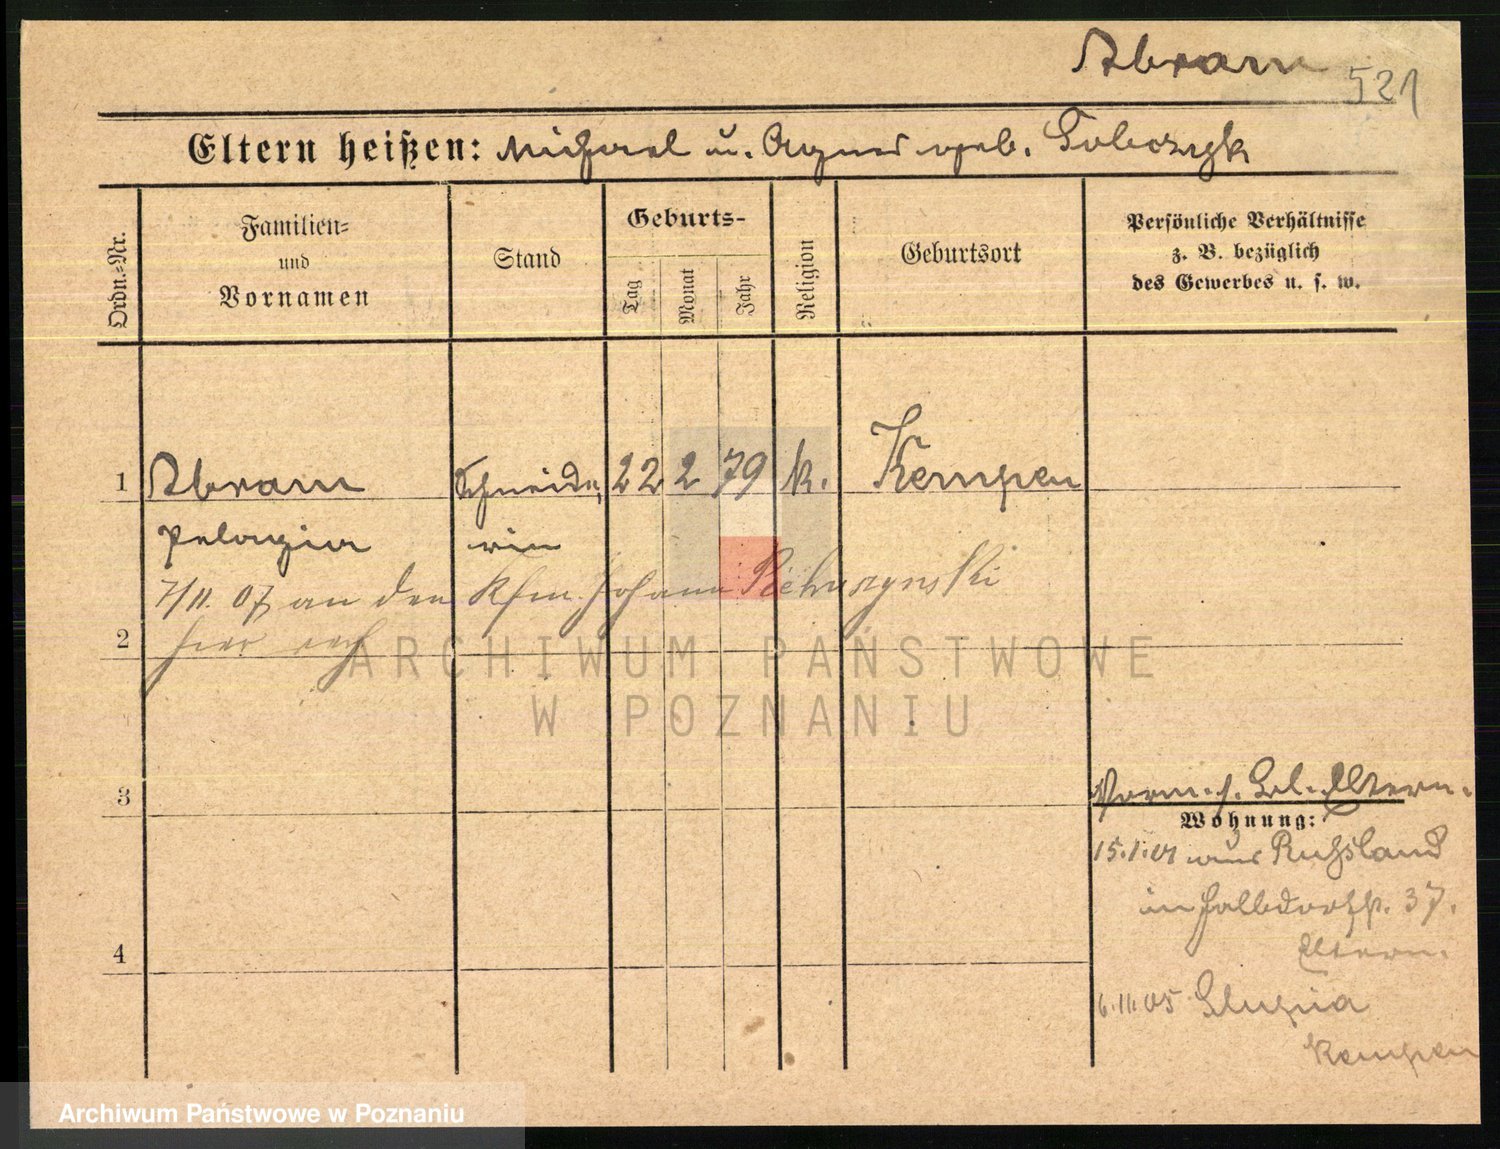 Abram
521
Eltern heißen: Michael u. Agnes geb. Sobczyk
Ordn.-Nr.
Familien-
und
Vornamen
Stand
Geburts-
Tag
Monat
Jahr
Religion
Geburtsort
Persönliche Verhältnisse
z. B. bezüglich
des Gewerbes u. s. w.
1 Abram Schneide- 22 2 79 k. Kempen
Pelagia rin
7/11. 07 an den Kfm. Johann
2 hier verh
ARCHIWUM PAŃSTWOWE
W POZNANIU
3
Vorm. s. Bl. Eltern.
Wohnung:
15.1.01 aus Russland
in Halbdorfstr. 37.
Eltern.
4
6.11.05 Slupia
Kempen
Archiwum Państwowe w Poznaniu